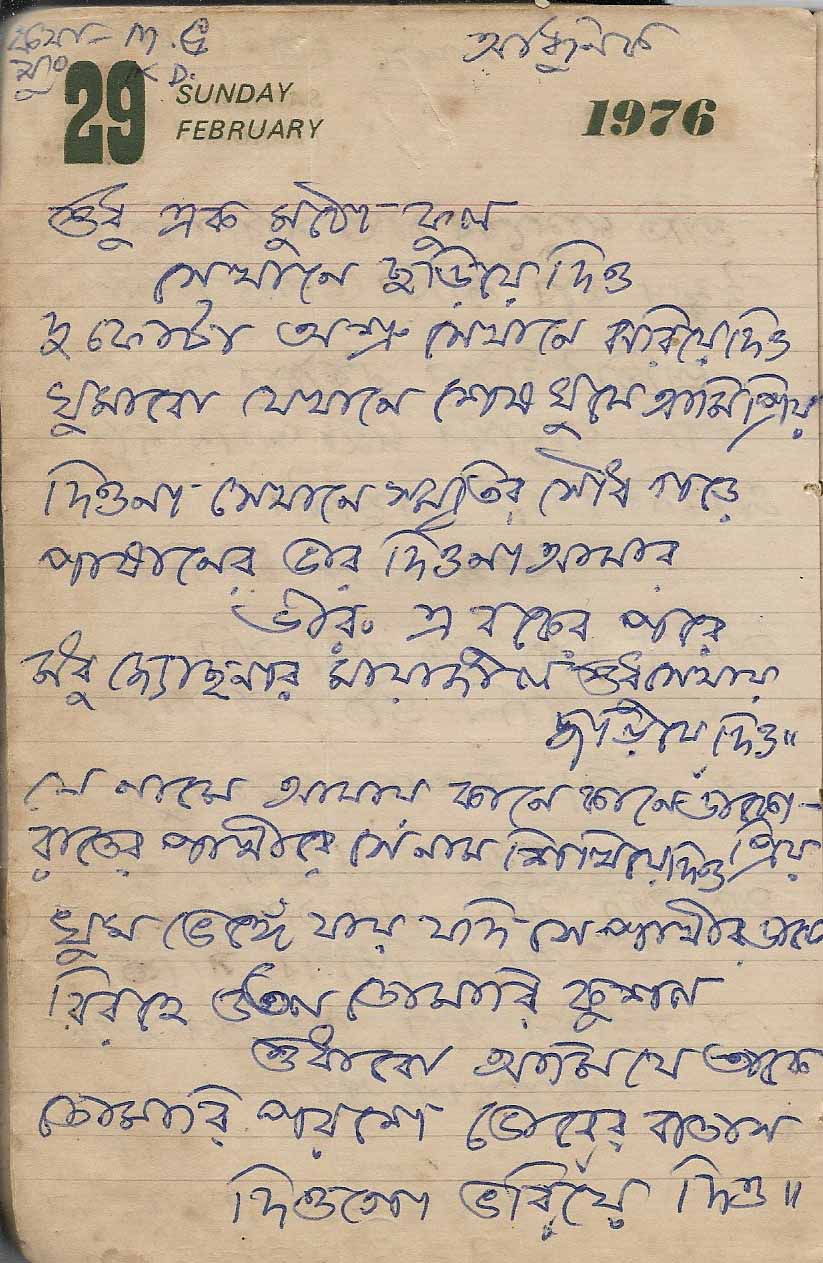 কথা - M.G আধুনিক
সুঃ K D.
29 SUNDAY
FEBRUARY 1976
শুধু এক মুঠো ফুল
সেখানে ছড়িয়ে দিও
দু ফোটা অশ্রু সেখানে ঝরিয়ে দিও
ঘুমাবো যেখানে শেষ ঘুমে আমি প্রিয়
দিওনা সেখানে স্মৃতির সৌধ গড়ে
পাষানের ভার দিওনা আমার
ভীরু এ বক্ষের পরে
মধু জোছনার মায়াজাল শুধু সেথায়
জড়িয়ে দিও॥
যে নামে আমায় কানে কানে ডাকো
রাতের পাখীরে সে নাম শিখিয়ে দিও প্রিয়
ঘুম ভেঙ্গে যায় যদি সে পাখীর ডাকে
বিরহে উতল তোমারি কুশল
শুধাবো আমি যে তাকে
তোমারি পরশে ভোরের বাতাস
দিওগো ভরিয়ে দিও॥